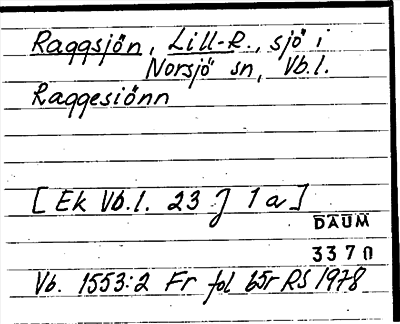 Raggsjön, Lill-R., sjö i
Norsjö sn, Vb.l.
Raggesiönn
[Ek Vb.l. 23 J 1 a]
DAUM
3370
Vb. 1553:2 Fr fol 65r RS 1978